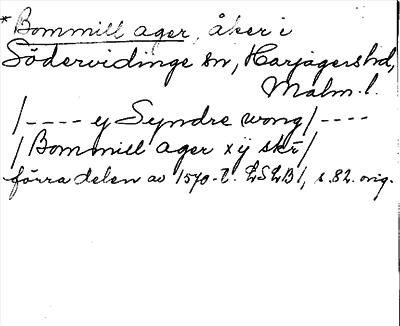 *Bommill ager, åker i
Södervidinge sn, Harjagers hd,
Malm. l.
/---- ej Syndre wong/----
/Bommill ager x ij skr/
förra delen av 1570-t. LSLB1, s. 82. orig.